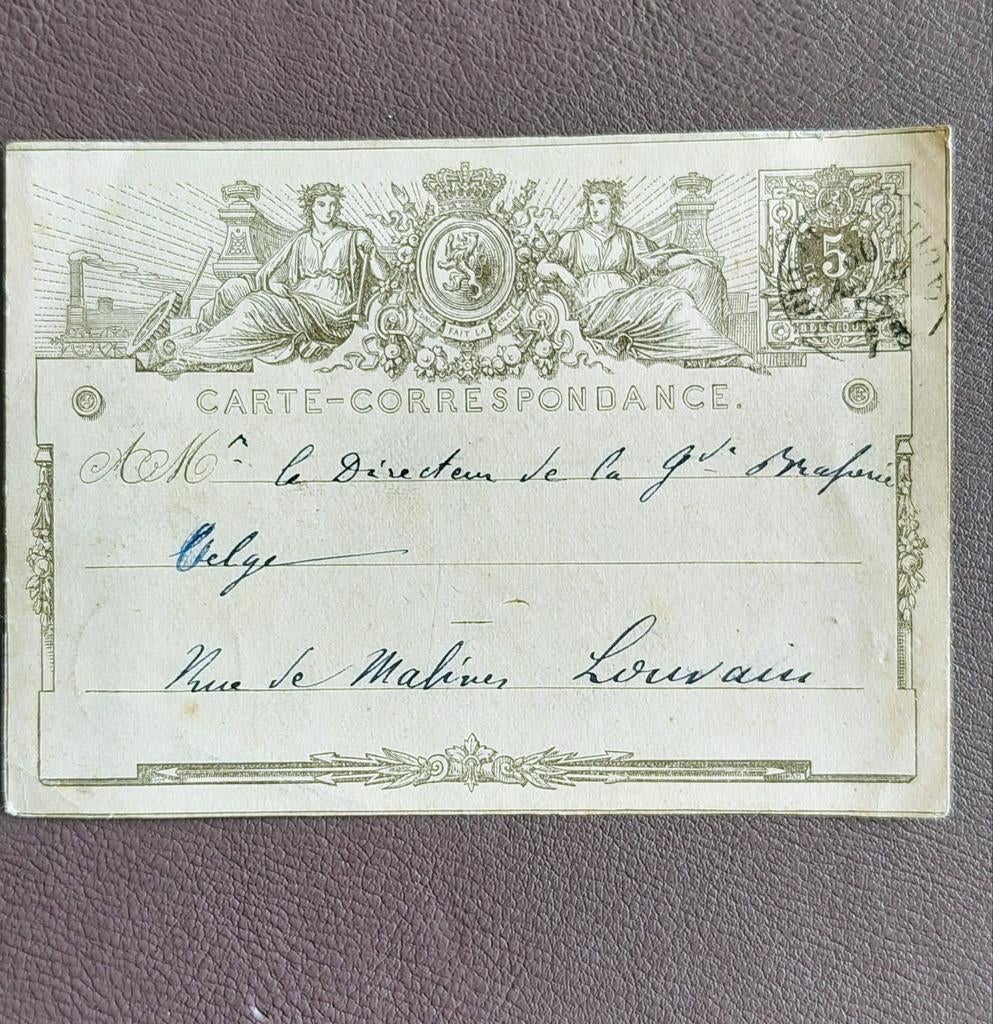 5
L'UNION FAIT LA FORCE
CARTE-CORRESPONDANCE.
A Mr le Directeur de la gde Brasserie
Belge
Rue de Malines Louvain